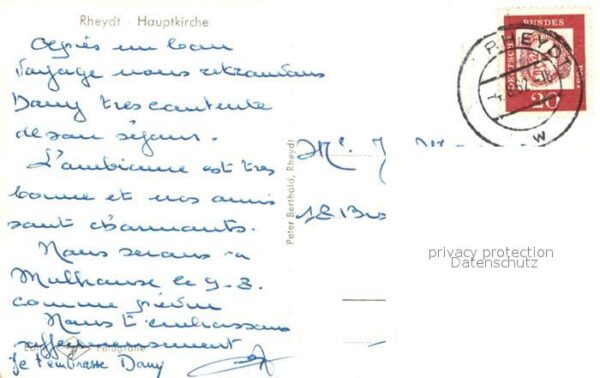 Rheydt - Hauptkirche
Après un bon
voyage nous retrouvons
Dany tres contente
de son séjour.
L'ambiance est tres
bonne et nos amis
sont charmants.
Nous serons a
Mulhouse le 9-8.
comme prévu
Nous t'embrassons
affectueusement
Je t'embrasse Dany
Peter Berthold, Rheydt
Fotografie
Mr. J
18 Bis
DEUTSCHE BUNDESPOST
20
RHEYDT
privacy protection
Datenschutz